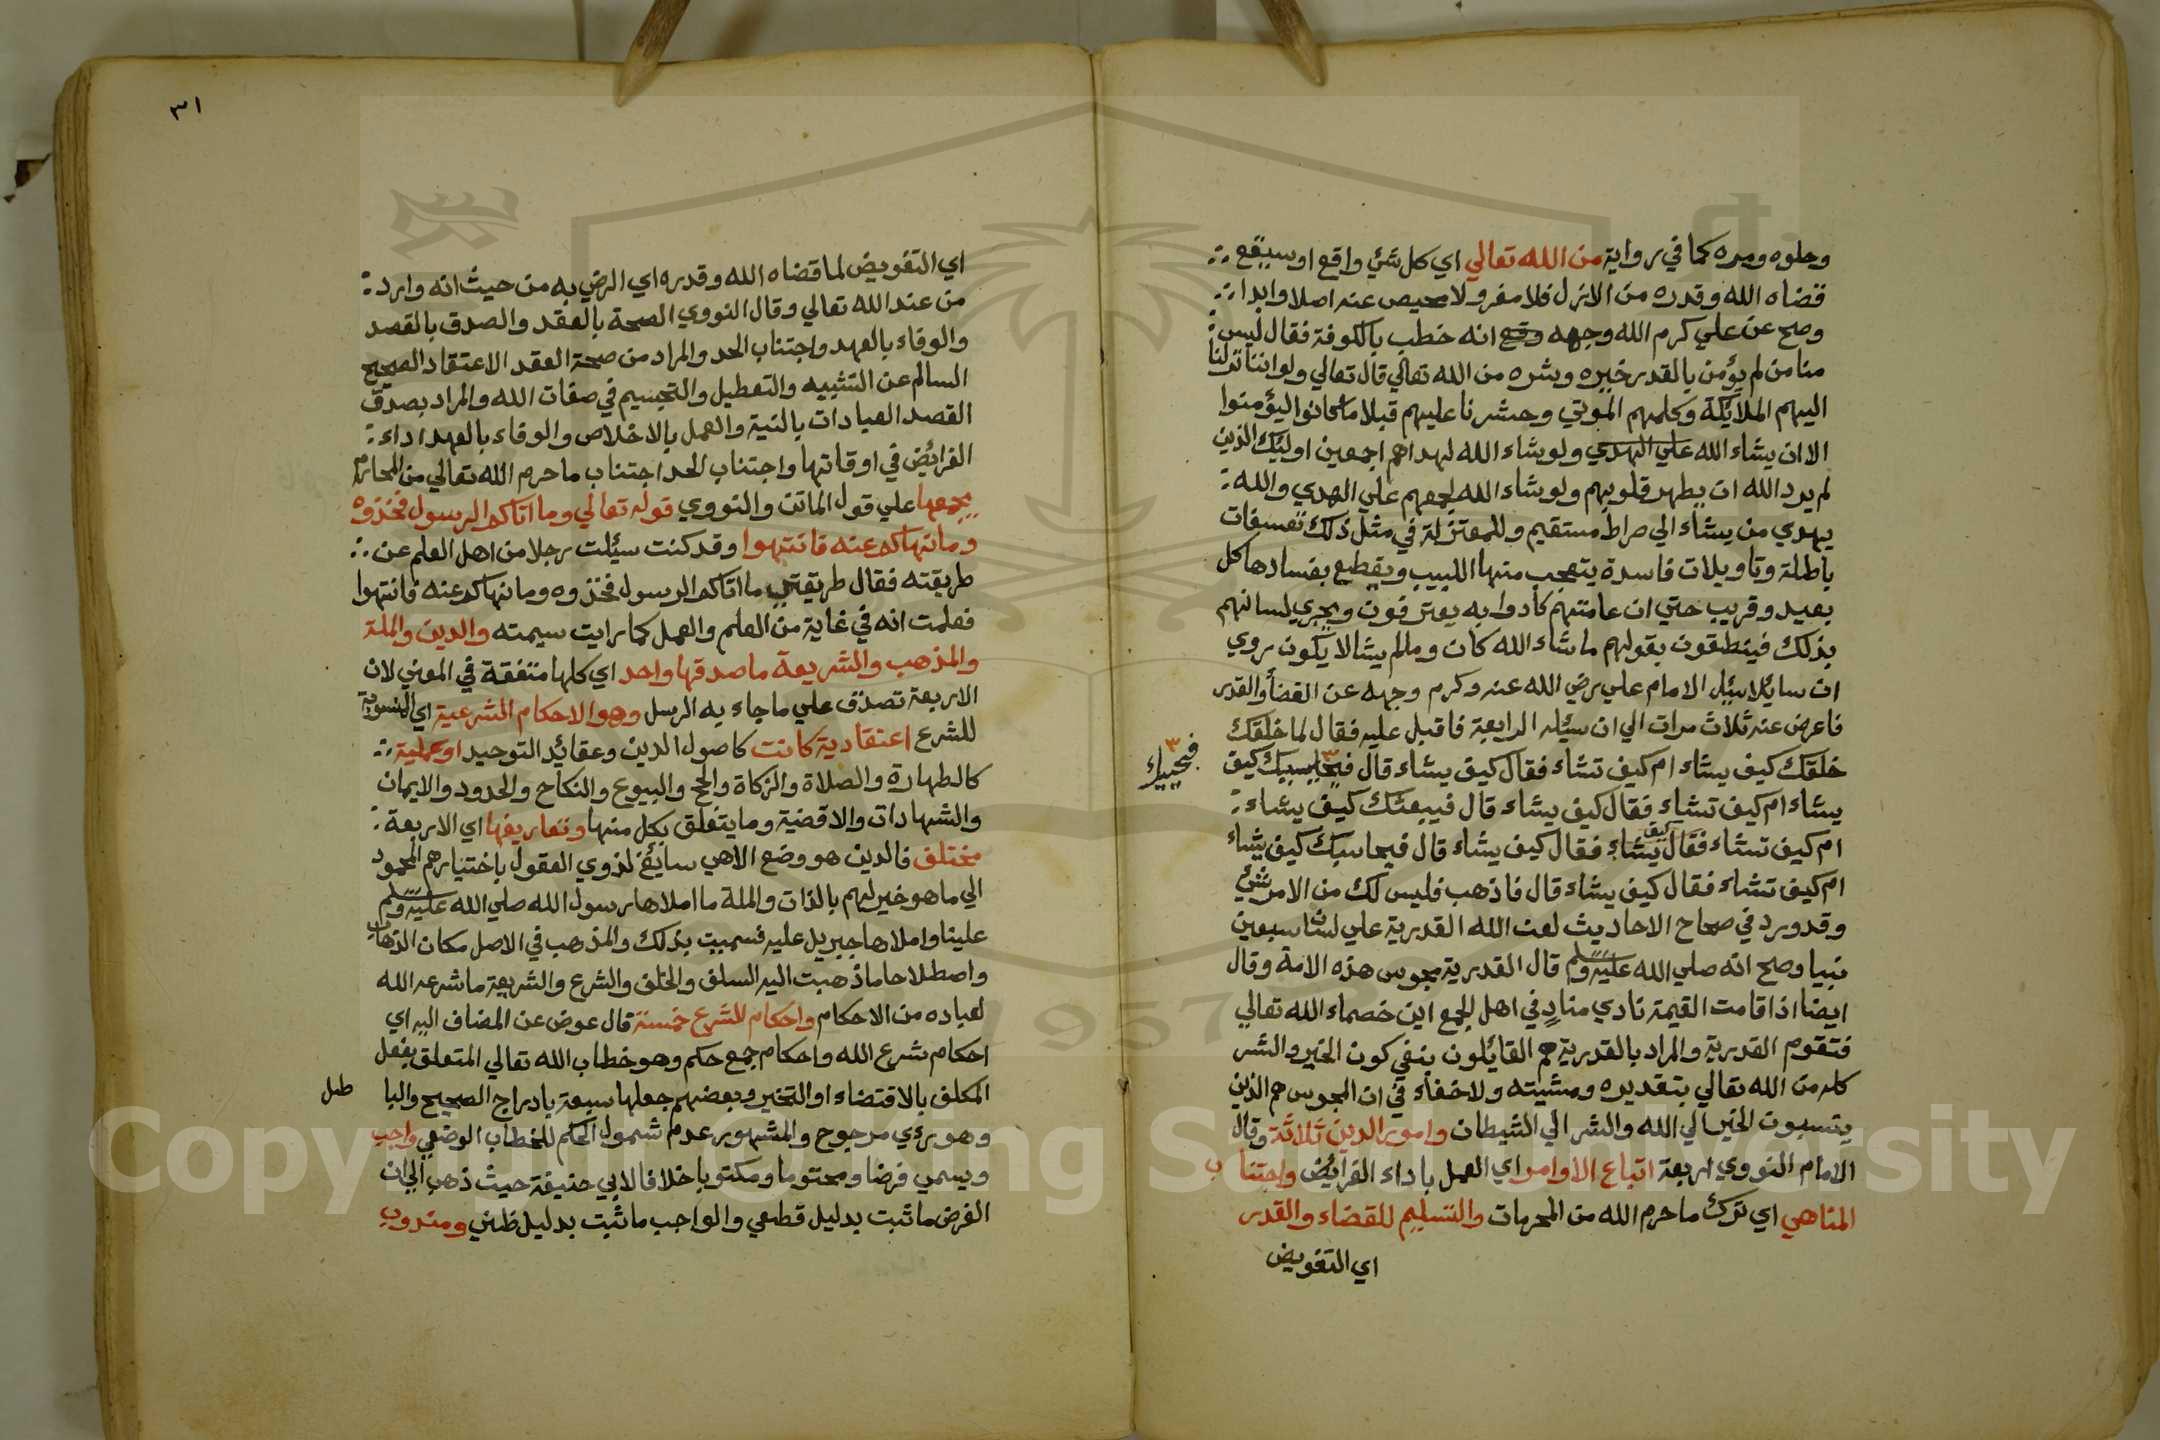 وحلوه ومره كما في رواية من الله تعالي اي كل شئ واقع او سيقع
قضاه الله وقدره من الازل فلا مفر ولا محيص عنه اصلا وابدا
وصح عن علي كرم الله وجهه انه خطب بالكوفة فقال ليس
منا من لم يؤمن بالقدر خيره وشره من الله تعالي قال تعالي ولو اننا نزلنا
اليهم الملايكة وكلمهم الموتي وحشرنا عليهم قبلا ما كانوا ليؤمنوا
الا ان يشاء الله علي الهدي ولو يشاء الله لهداهم اجمعين اوليئك الذين
لم يرد الله ان يطهر قلوبهم ولو شاء الله لجمعهم علي الهدي والله
يهدي من يشاء الي صراط مستقيم وللمعتزلة في مثل ذلك تعسفات
باطلة وتاويلات فاسدة يتعجب منها اللبيب ويقطع بفسادها كل
بعيد وقريب حتي ان عامتهم كادوا به يعترفون ويجري لسانهم
بذلك فينطقون بقولهم ما شاء الله كان وما لم يشا لا يكون روي
ان سايلا سئل الامام علي رضي الله عنه وكرم وجهه عن القضأ والقدر
فاعرض عنه ثلاث مرات الي ان سئله الرابعة فاقبل عليه فقال لما خلقك
خلقك كيف يشاء ام كيف تشاء فقال كيف يشاء قال كيف
فيحييك
يشاء ام كيف تشاء فقال كيف يشاء قال فيبعثك كيف يشاء
ام كيف تشاء فقال كيف يشاء فقال كيف يشاء قال فيحاسبك كيف يشاء
ام كيف تشاء فقال كيف يشاء قال فاذهب فليس لك من الامر شئ
وقد ورد في صحاح الاحاديث لعن الله القدرية علي لسان سبعين
نبيا وصح انه صلي الله عليه وسلم قال القدرية مجوس هذه الامة وقال
ايضا اذا قامت القيمة نادي مناد في اهل الجمع اين خصماء الله تعالي
فتقوم القدرية والمراد بالقدرية هم القايلون بنفي كون الخير والشر
كله من الله تعالي بتقديره ومشيته ولا خفاء في ان المجوس هم الذين
ينسبون الخير الي الله والشر الي الشيطان وامور الدين ثلاثة وقال
الامام النووي اربعة اتباع الاوامر اي العمل باداء الفرائض واجتناب
المناهي اي ترك ما حرم الله من المحرمات والتسليم للقضاء والقدر
اي التفويض
٣١
اي التفويض لما قضاه الله وقدره اي الرضي به من حيث انه وارد
من عند الله تعالي وقال النووي الصحة بالعقد والصدق بالقصد
والوفاء بالعهد واجتناب الحد والمراد من صحة العقد الاعتقاد الصحيح
السالم عن التشبيه والتعطيل والتجسيم في صفات الله والمراد بصدق
القصد العبادات بالنية والعمل بالاخلاص والوفاء بالعهد اداء
الفرائض في اوقاتها واجتناب الحد اجتناب ما حرم الله تعالي من المحارم
يجمعها علي قول الماتن والنووي قوله تعالي وما اتاكم الرسول فخذوه
وما نهاكم عنه فانتهوا وقد كنت سيئلت رجلا من اهل العلم عن
طريقته فقال طريقتي ما اتاكم الرسول فخذوه وما نهاكم عنه فانتهوا
فعلمت انه في غاية من العلم والعمل كما رايت سيمته والدين والملة
والمذهب والشريعة ما صدقها واحد اي كلها متفقة في المعني لان
الاربعة تصدق علي ما جاء به الرسل وهو الاحكام الشرعية اي المنسوبة
للشرع اعتقادية كانت كاصول الدين وعقائد التوحيد او عملية
كالطهارة والصلاة والزكاة والحج والبيوع والنكاح والحدود والايمان
والشهادات والاقضية وما يتعلق بكل منها وتعاريفها اي الاربعة
مختلف فالدين هو وضع الاهي سايغ لذوي العقول باختيارهم المحمود
الي ما هو خير لهم بالذات والملة ما املاها رسول الله صلي الله عليه وسلم
علينا واملاها جبريل عليه فسميت بذلك والمذهب في الاصل مكان الذهاب
واصطلاحا ما ذهبت اليه السلف والخلف والشرع والشريعة ما شرعه الله
لعباده من الاحكام واحكام للشرع خمسة قال عوض عن المضاف اليه اي
احكام شرع الله واحكام جمع حكم وهو خطاب الله تعالي المتعلق بفعل
المكلف بالاقتضاء او التخير وبعضهم جعلها سبعة بادراج الصحيح والبا
طل
وهو رءي مرجوح والمشهور عدم شمول الحكم للخطاب الوضعي واجب
ويسمي فرضا ومحتوما ومكتوبا خلافا لابي حنيفة حيث ذهب الي ان
الفرض ما ثبت بدليل قطعي والواجب ما ثبت بدليل ظني ومندوب
Copyright © King Saud University
1957